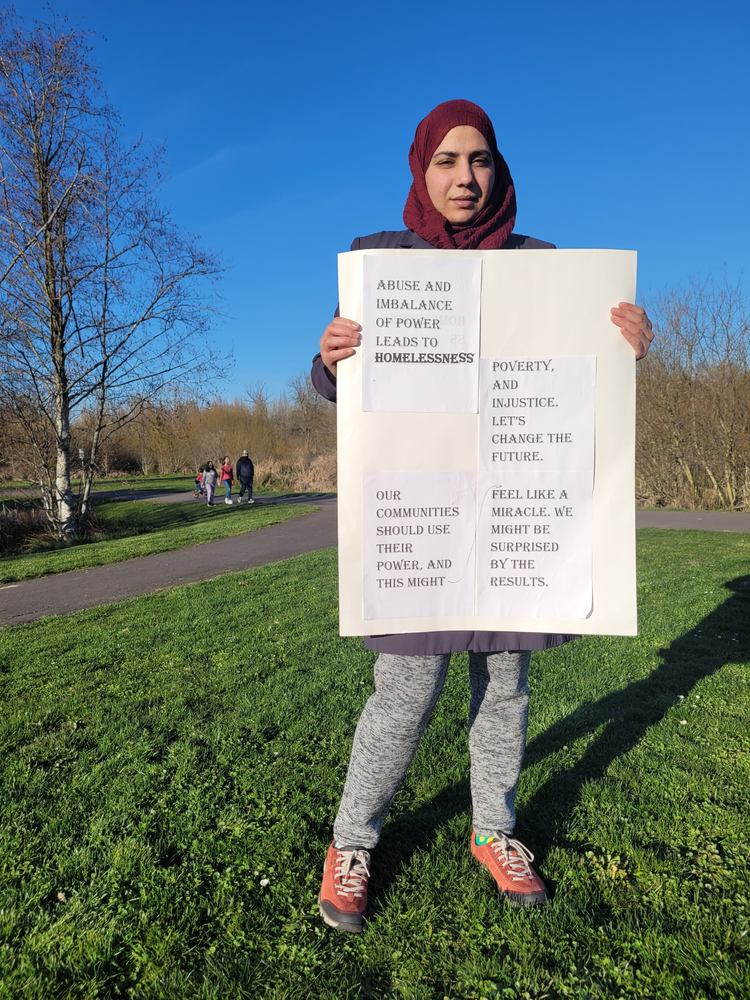 ABUSE AND
IMBALANCE
OF POWER
LEADS TO
HOMELESSNESS
POVERTY,
AND
INJUSTICE.
LET'S
CHANGE THE
FUTURE.
OUR
COMMUNITIES
SHOULD USE
THEIR
POWER, AND
THIS MIGHT
FEEL LIKE A
MIRACLE. WE
MIGHT BE
SURPRISED
BY THE
RESULTS.